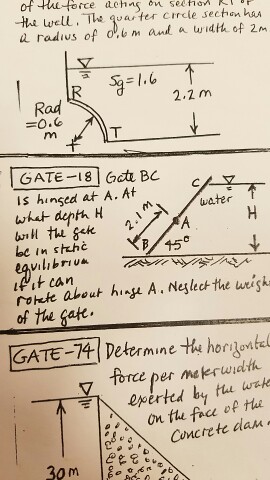 of the force acting on section RT of
the well. The quarter circle section has
a radius of 0.6 m and a width of 2m
Sg=1.6
R
2.2 m
Rad
=0.6
m
T
GATE-18 Gate BC
is hinged at A. At
what depth H
will the gate
be in static
equilibrium
if it can
rotate about hinge A. Neglect the weigh
of the gate.
C
water
2.1m
A
H
B
45°
GATE-74 Determine the horizontal
force per meter width
exerted by the wate
on the face of the
Concrete dam.
30m